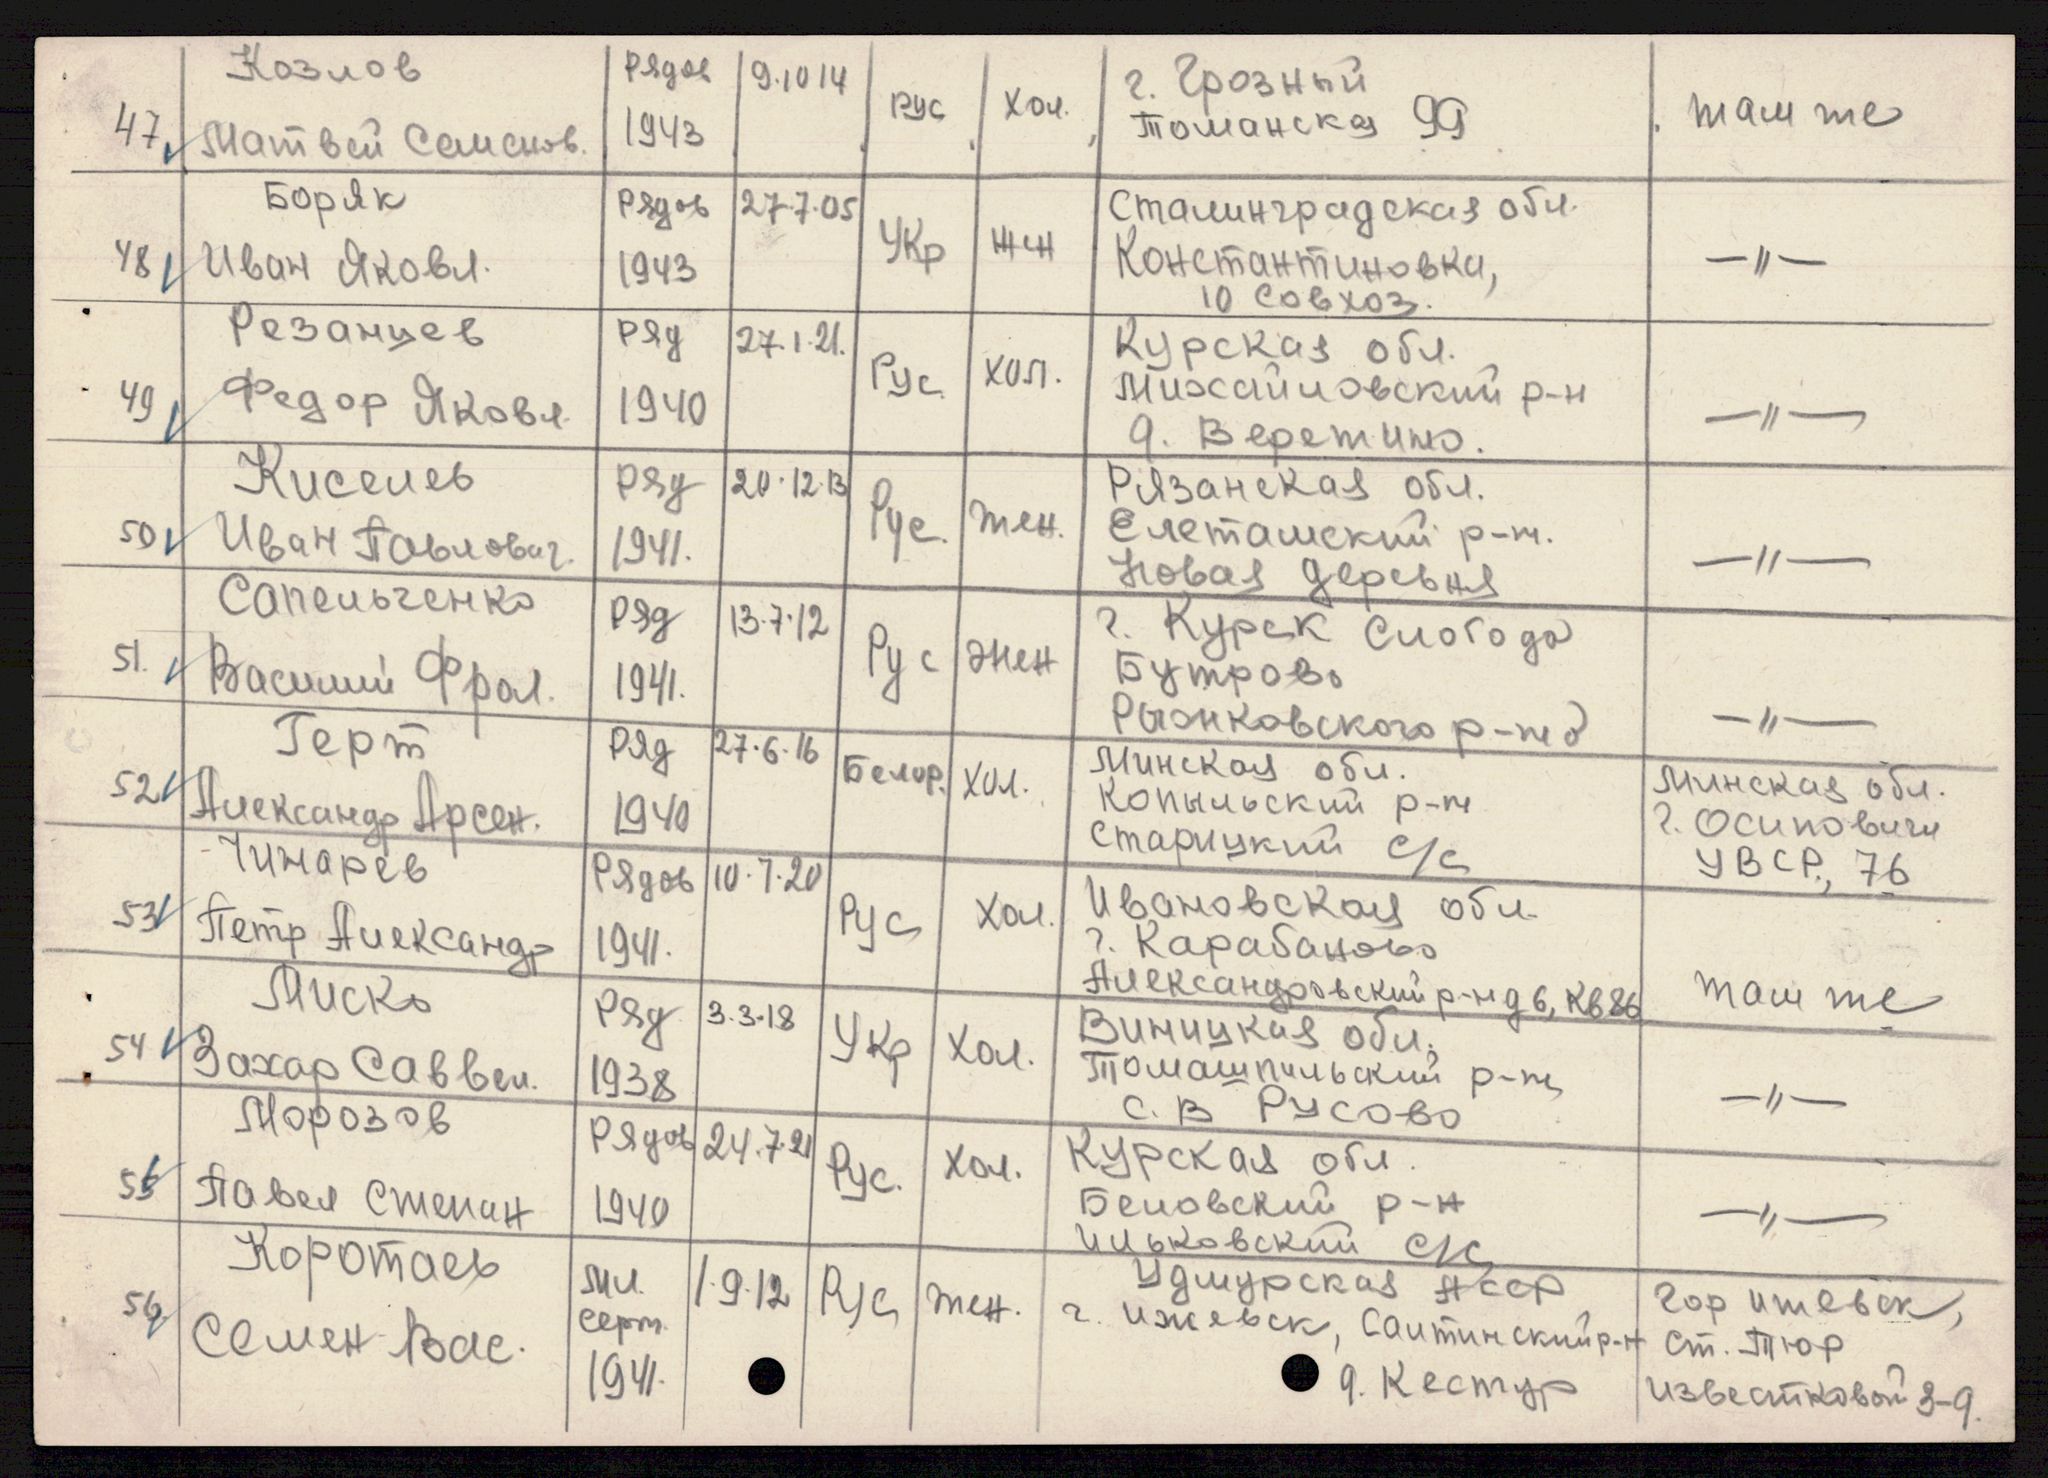 47 Козлов Рядов 9.10.14 рус хол. г. Грозный там же
Матвей Семенов. 1943 Томанска 99
48 Боряк Рядов 27.7.05 Укр жен Сталинградская обл. —〃—
Иван Яковл. 1943 Константиновка,
10 совхоз.
49 Резанцев Ряд 27.1.21. Рус хол. Курская обл. —〃—
Федор Яковл. 1940 Михайловский р-н
д. Веретино.
50 Киселев Ряд 20.12.13 Рус. жен. Рязанская обл. —〃—
Иван Павлович. 1941. Елетамский р-н.
Новая деревня
51. Сапельченко Ряд 13.7.12 Рус жен г. Курск Слобода —〃—
Василий Фрол. 1941. Бутрово
Рыжковского р-на
52 Герт Ряд 27.6.16 Белор. хол. Минская обл. Минская обл.
Александр Арсен. 1940 Копыльский р-н г. Осиповичи
Старицкий с/с УВСР., 76
53 Чинарев Рядов 10.7.20 Рус Хол. Ивановская обл. там же
Петр Александр 1941. г. Карабаново
Александровский р-н д 6, кв 86
54 Миско Ряд 3.3.18 Укр Хол. Виницкая обл. —〃—
Захар Саввел. 1938 Томашпильский р-н,
с. В Русово
55 Морозов Рядов 24.7.21 Рус. Хол. Курская обл. —〃—
Павел Степан 1940 Беловский р-н
Ильковский с/с
56 Коротаев Мл. серж. 1.9.12 Рус жен. Удмурская АССР гор Ижевск,
Семен Вас. 1941. г. Ижевск, р-н ст. Тюр
д. Кестур известковой 3-9.